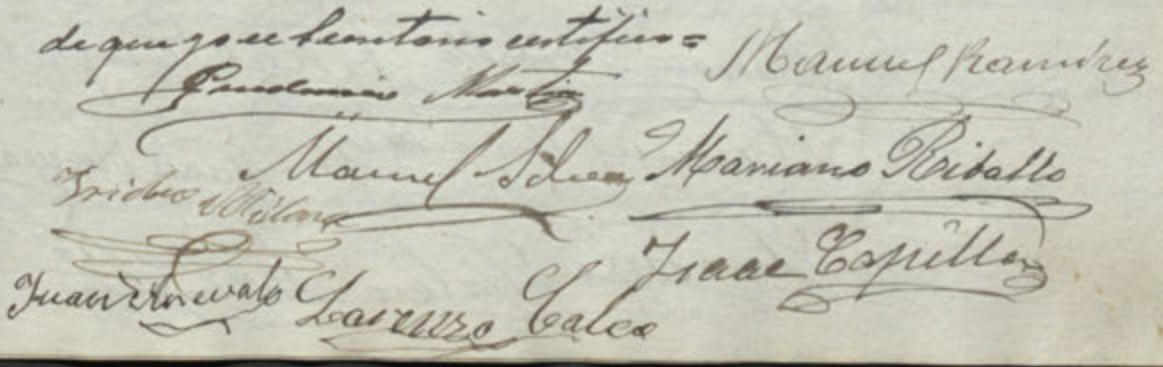 de que yo el Secretario certifico =
Manuel Ramírez
Prudencio Martin
Manuel Mariano Riballo
Isidro Milara
Isaac Capilla
Juan Arevalo Lorenzo Calco